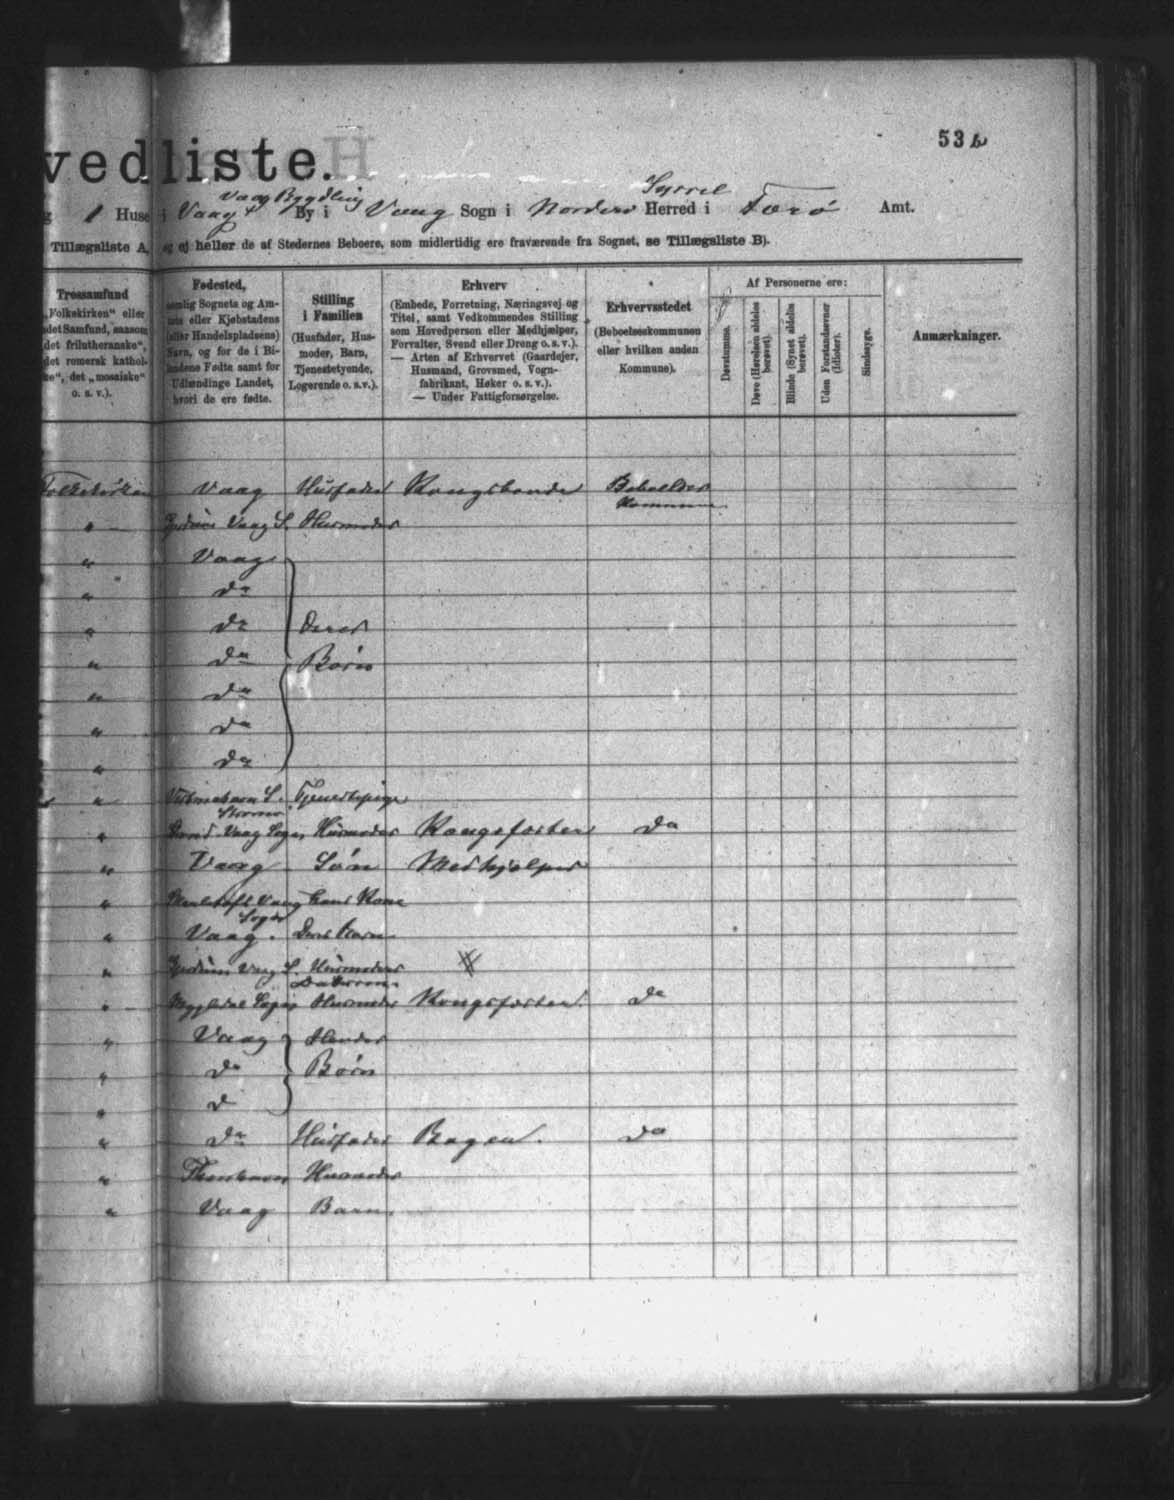 53 b
vedliste.
Vaag Bygdling Syssel
1 Huse i Vaag By i Vaag Sogn i Norderø Herred i Færø Amt.
Tillægsliste A, og ej heller de af Stedernes Beboere, som midlertidig ere fraværende fra Sognet, se Tillægsliste B).
Trossamfund
„Folkekirken“ eller
det Samfund, saasom
„det frilutheranske“,
det romersk kathol-
ke“, det „mosaiske“
o. s. v.).
Fødested,
nemlig Sognets og Am-
tets eller Kjøbstadens
(eller Handelspladsens)
Navn, og for de i Bi-
landene Fødte samt for
Udlændinge Landet,
hvori de ere fødte.
Stilling
i Familien
(Husfader, Hus-
moder, Barn,
Tjenestetyende,
Logerende o. s. v.).
Erhverv
(Embede, Forretning, Næringsvej og
Titel, samt Vedkommendes Stilling
som Hovedperson eller Medhjælper,
Forvalter, Svend eller Dreng o. s. v.).
— Arten af Erhvervet (Gaardejer,
Husmand, Grovsmed, Vogn-
fabrikant, Høker o. s. v.).
— Under Fattigforsørgelse.
Erhvervsstedet
(Beboelseskommunen
eller hvilken anden
Kommune).
Af Personerne ere:
Døvstumme.
Døve (Hørelsen aldeles berøvet).
Blinde (Synet aldeles berøvet).
Uden Forstandsevner (Idioter).
Sindssyge.
Anmærkninger.
Folkekirken Vaag Husfader Kongsbonde Beboelses
Kommune
" Vaag S. Husmoder
" Vaag
" do
" do Deres
" do Børn
" do
" do
" do
" S. Tjenestepige
" Vaag Sogn Husmoder Kongsfæster do
" Vaag Søn Medhjælper
" Vaag hans Kone
Sogn
" Vaag. Deres Barn
" Vaag S. Husmoders
" Sogn Husmoder Kongsfæster. do
" Vaag Hendes
" do Børn
" d
" do Husfader Bager. do
" Thorshavn Husmoder
" Vaag Barn.